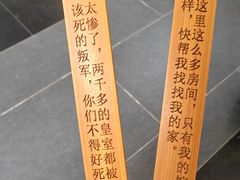 这里这么多房间，只有我的
样，快帮我找找我的家。
太惨了，两千多的皇室都被
该死的叛军，你们不得好死